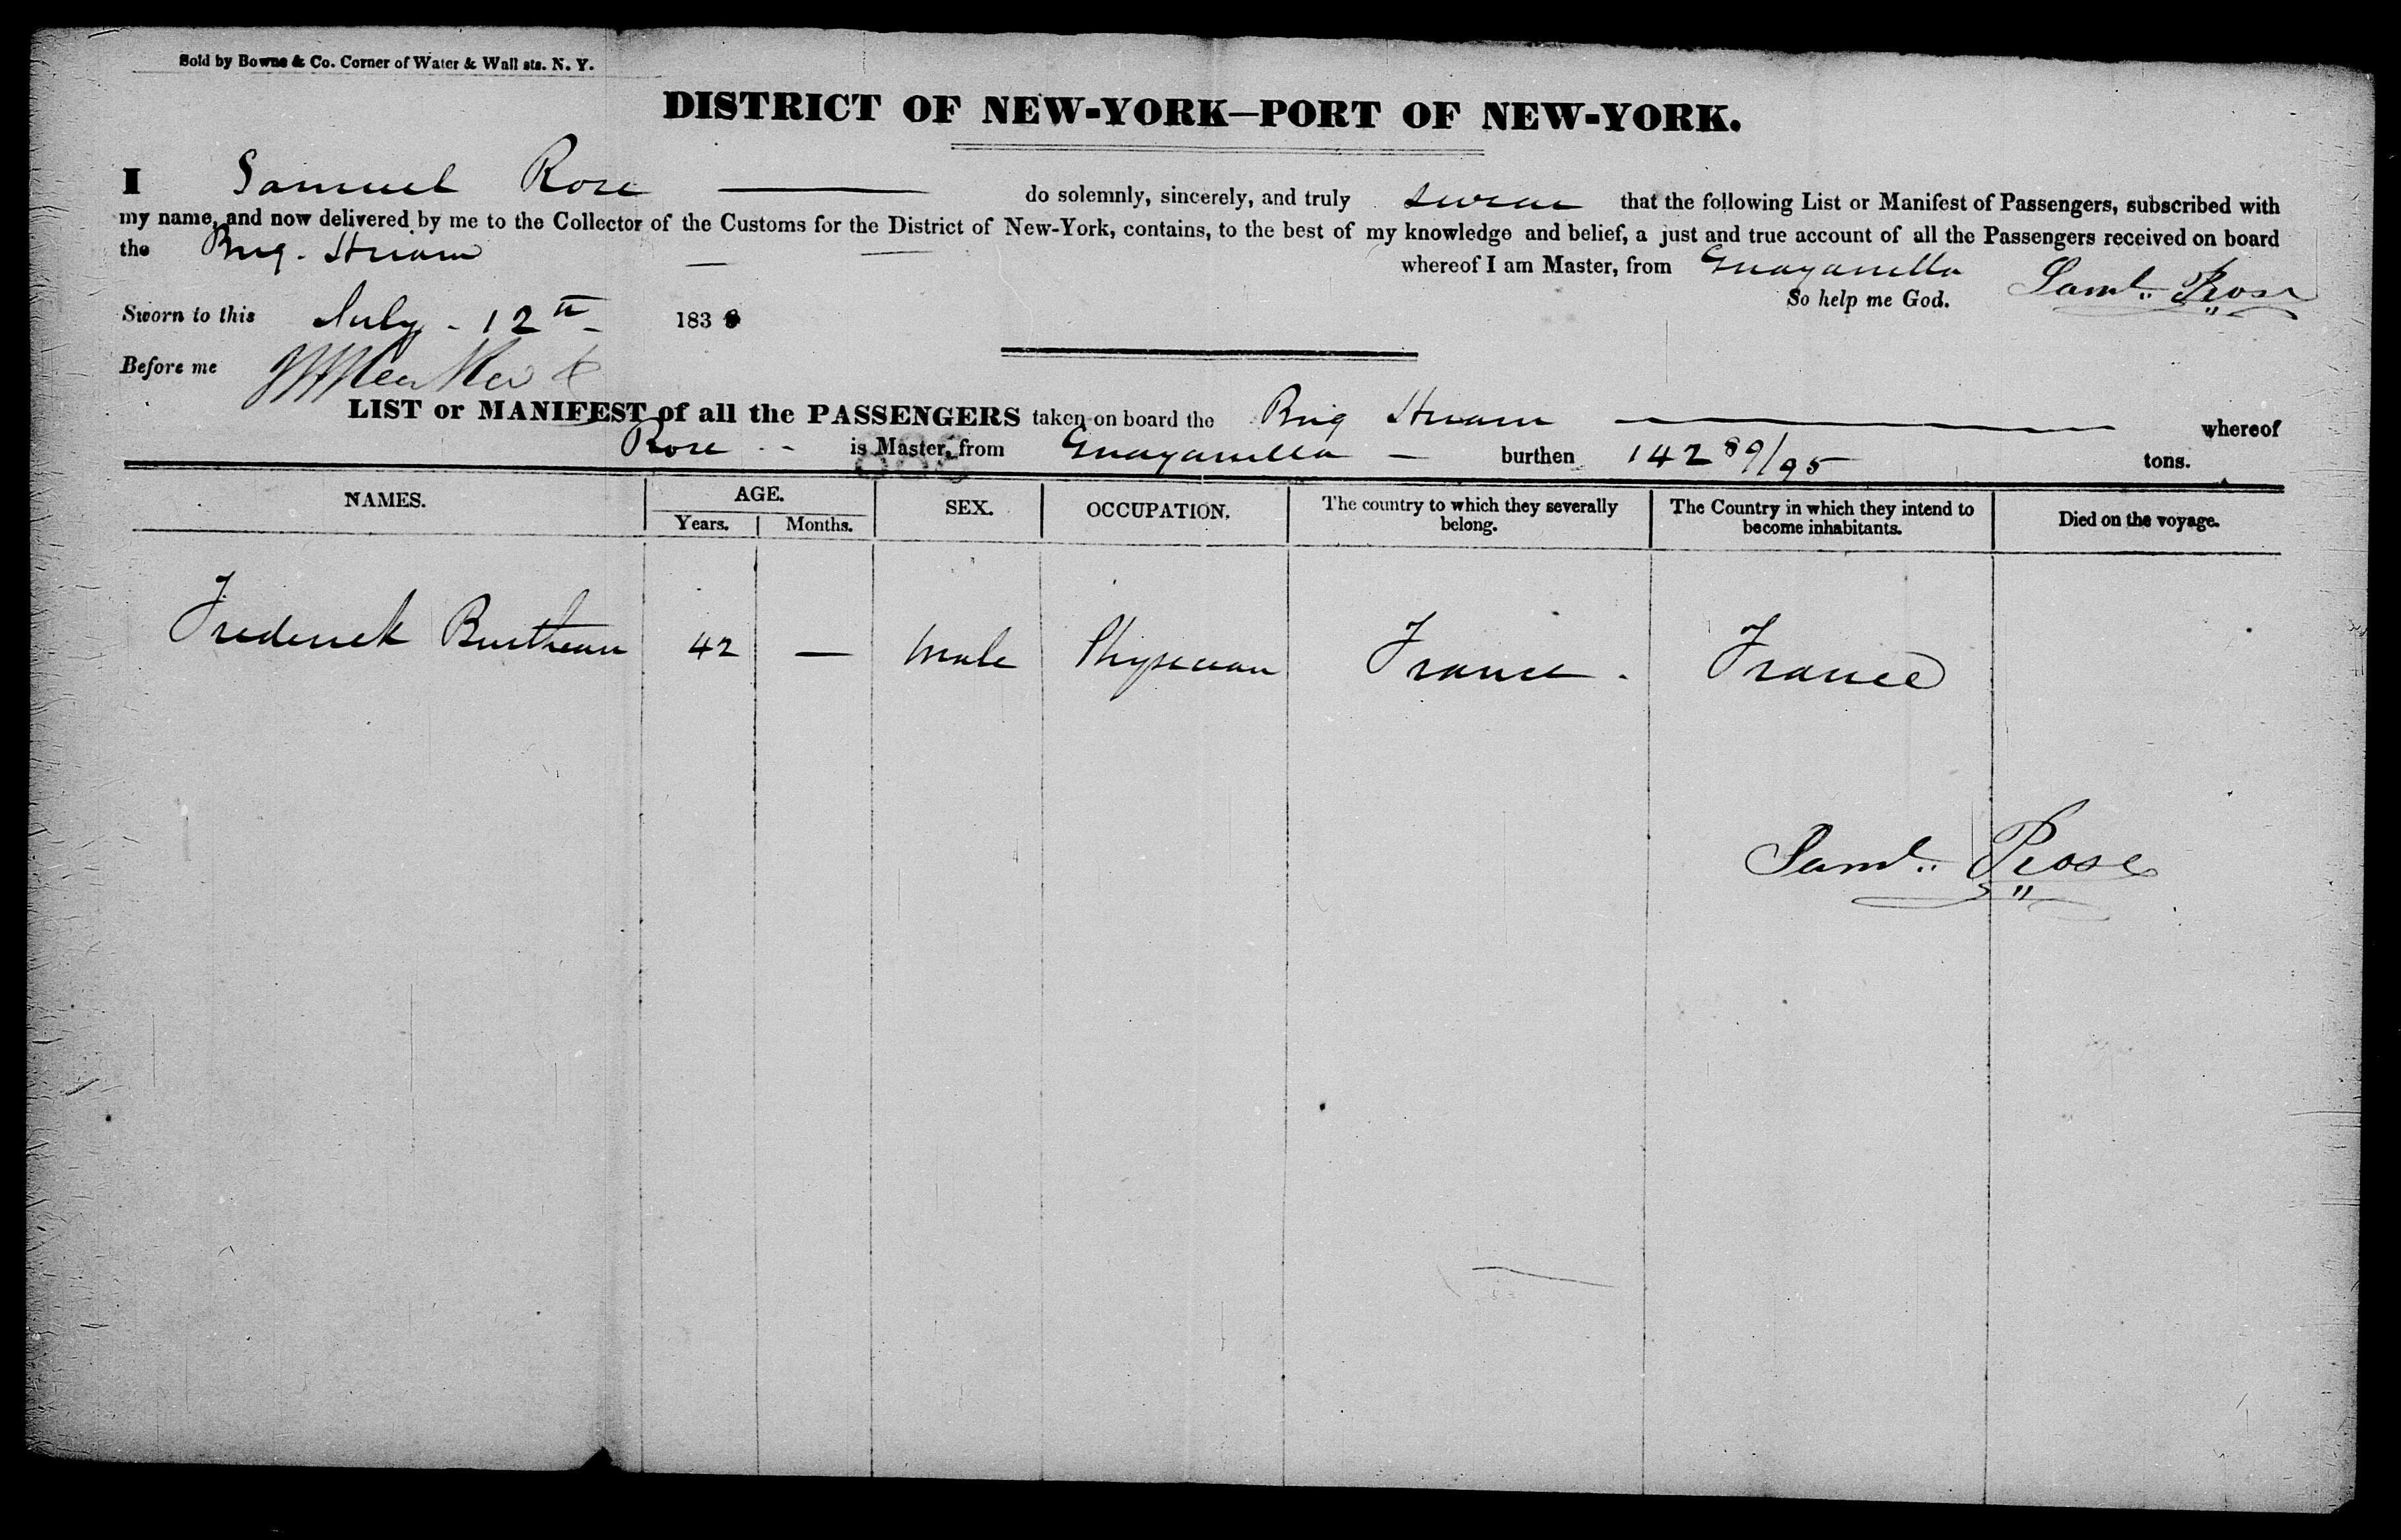 Sold by Bowne & Co. Corner of Water & Wall sts. N. Y.
DISTRICT OF NEW-YORK—PORT OF NEW-YORK.
I Samuel Rose do solemnly, sincerely, and truly swear that the following List or Manifest of Passengers, subscribed with
my name, and now delivered by me to the Collector of the Customs for the District of New-York, contains, to the best of my knowledge and belief, a just and true account of all the Passengers received on board
the Brig. whereof I am Master, from Guayanilla
So help me God. Saml. Rose
Sworn to this July - 12th 183
Before me
LIST or MANIFEST of all the PASSENGERS taken on board the Brig whereof
Rose is Master, from Guayanilla — burthen 142 89/95 tons.
NAMES. AGE. SEX. OCCUPATION. The country to which they severally belong. The Country in which they intend to become inhabitants. Died on the voyage.
Years. Months.
Frederick 42 — Male Physician France France
Saml. Rose